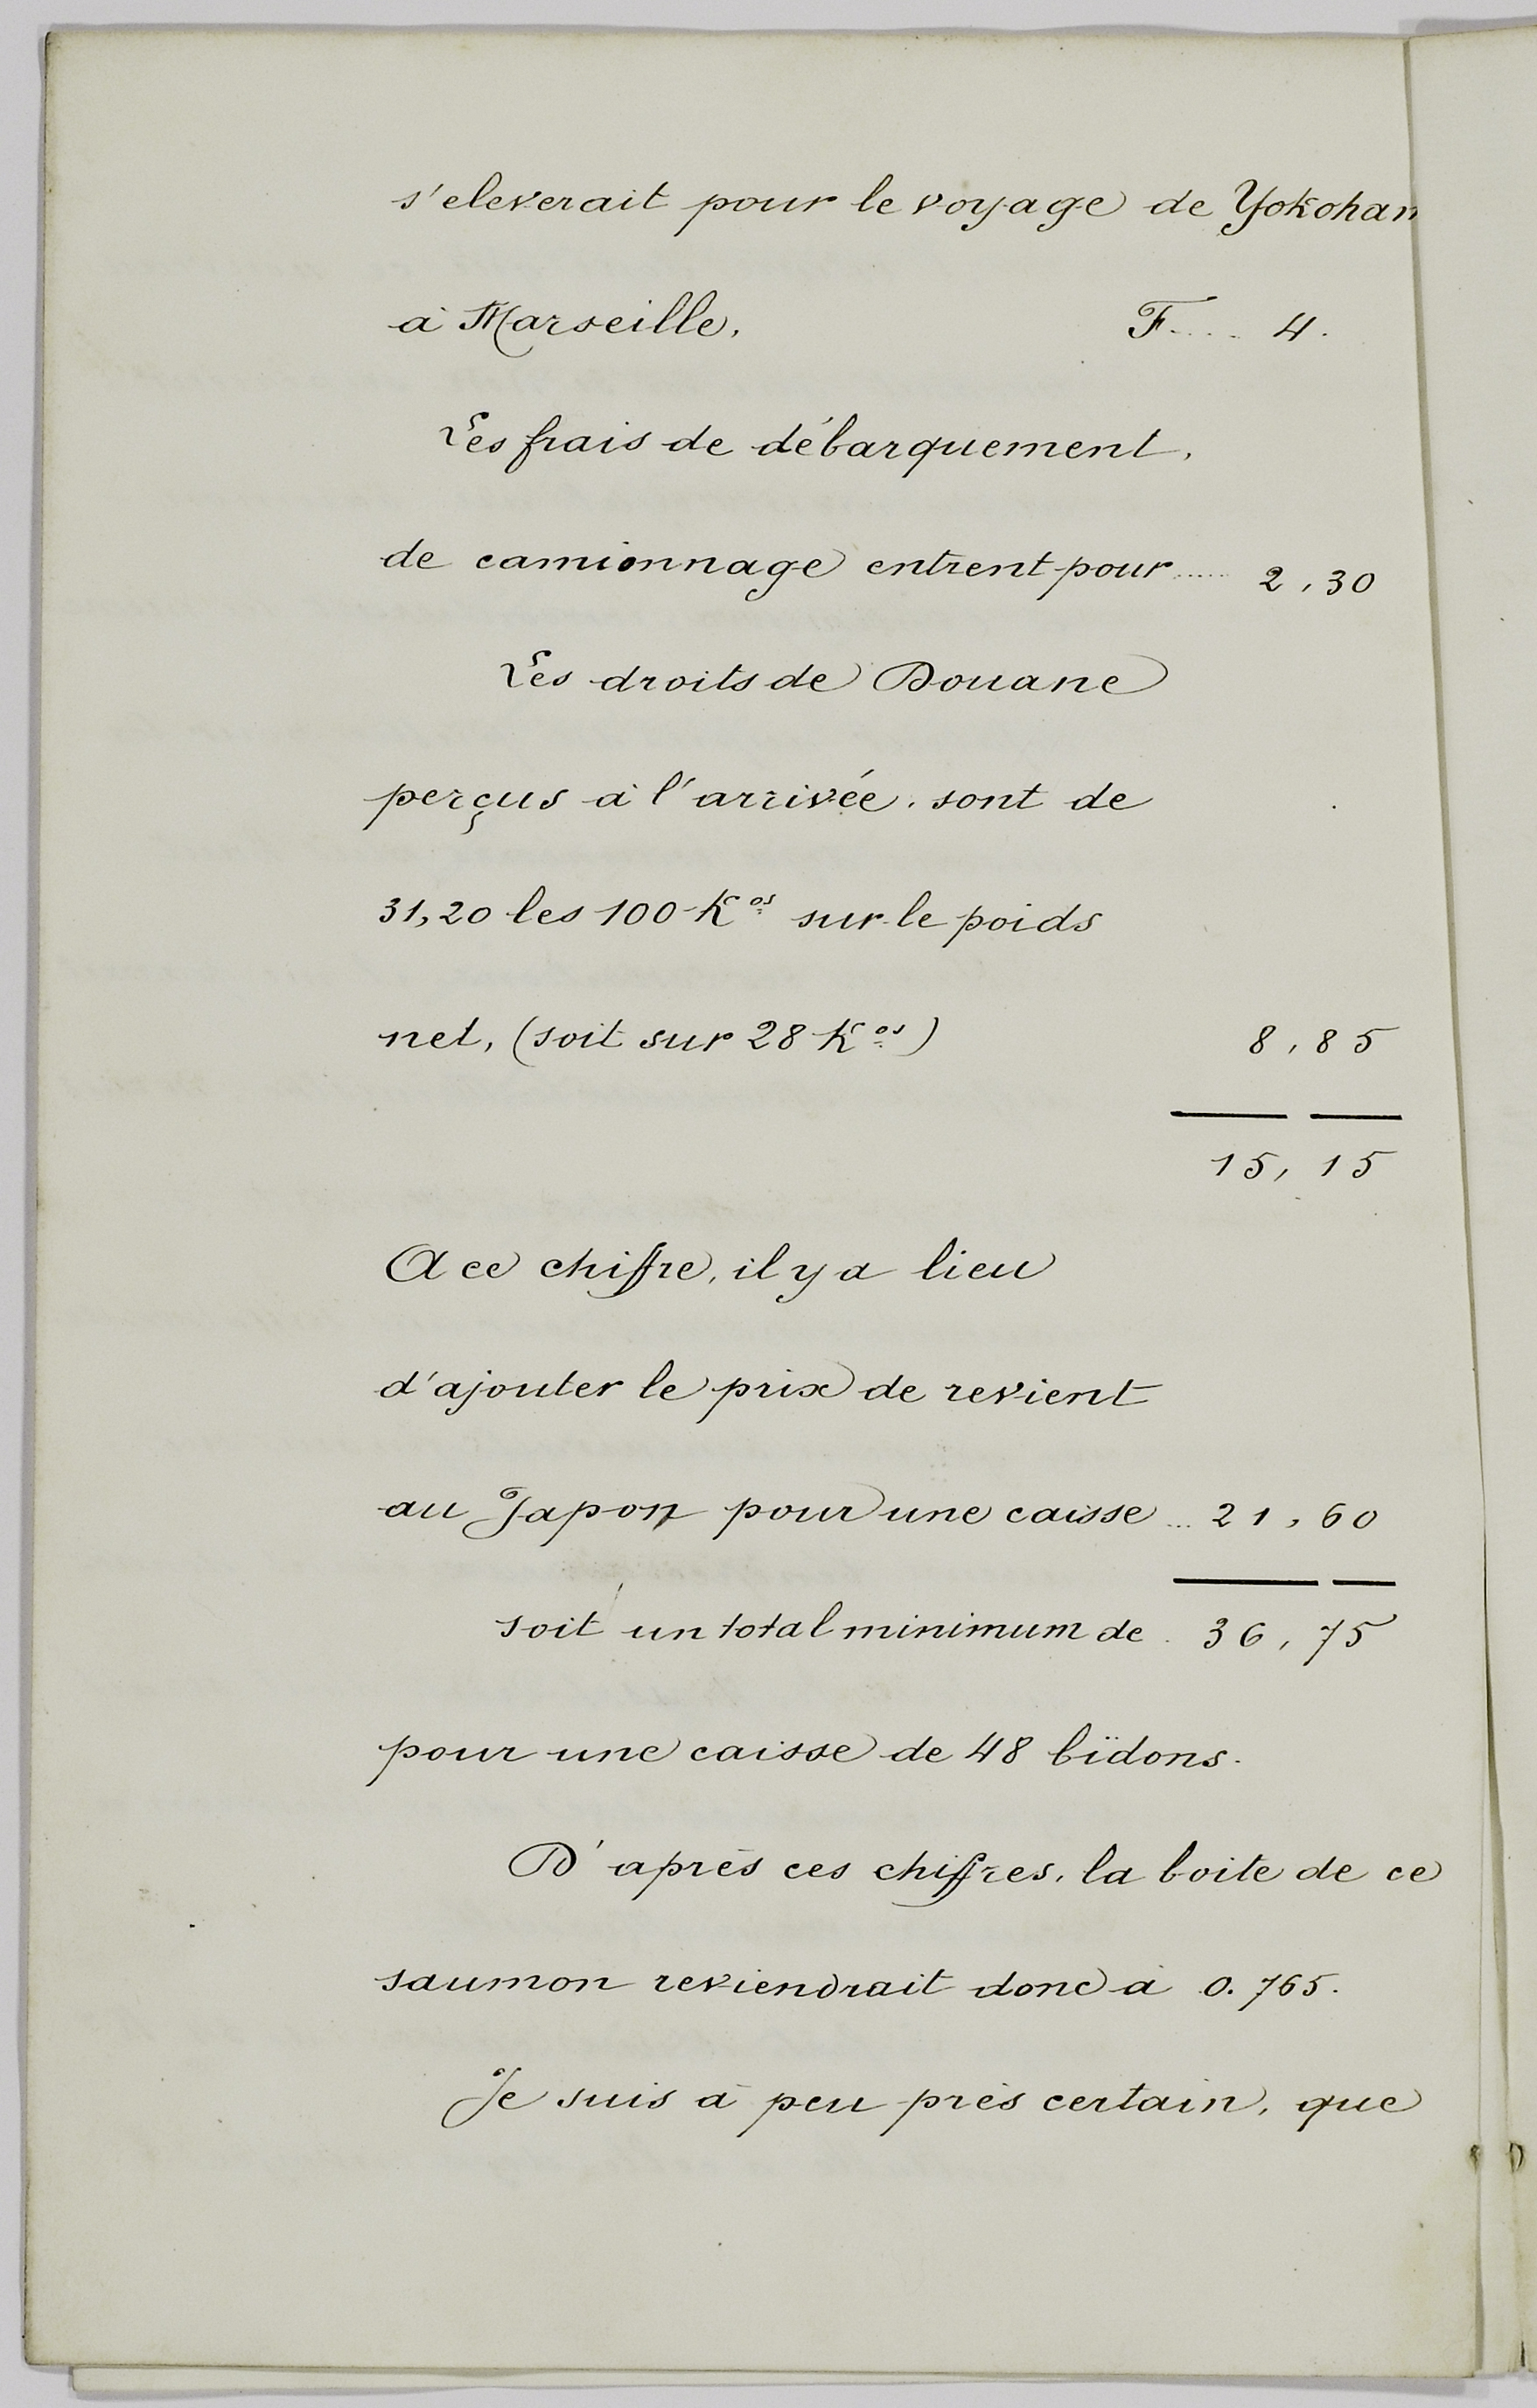 s'eleverait pour le voyage de Yokoham
à Marseille, F.... 4.
Les frais de débarquement,
de camionnage entrent pour ..... 2,30
Les droits de Douane
perçus à l'arrivée, sont de
31,20 les 100 Kos sur le poids
net, (soit sur 28 Kos) 8,85
15,15
A ce chiffre, il y a lieu
d'ajouter le prix de revient
au Japon pour une caisse ... 21,60
soit un total minimum de . 36,75
pour une caisse de 48 bidons.
D'après ces chiffres, la boite de ce
saumon reviendrait donc à 0.765.
Je suis à peu près certain, que